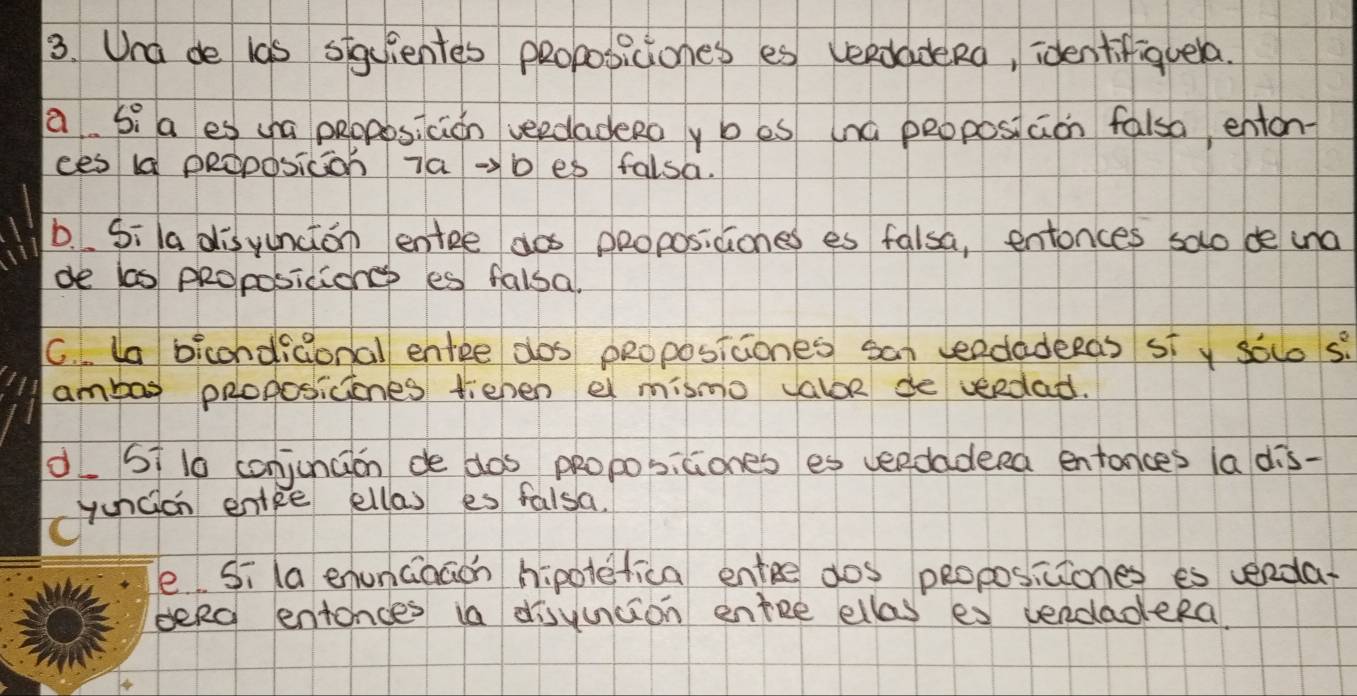 3. Una de las siguientes proposiciones es verdadera, identifiquela.
a.. Si a es una proposición verdadera y b es una proposición falsa, enton-
ces la proposición ¬a → b es falsa.
b.. Si la disyunción entre dos proposiciones es falsa, entonces solo de una
de las proposiciones es falsa.
C.. La bicondicional entre dos proposiciones son verdaderas si y sólo si
ambas proposiciones tienen el mismo valor de verdad.
d_ Si la conjunción de dos proposiciones es verdadera entonces la dis-
yunción entre ellas es falsa.
e.. Si la enunciación hipotética entre dos proposiciones es verda-
dera entonces la disyunción entre ellas es verdadera.